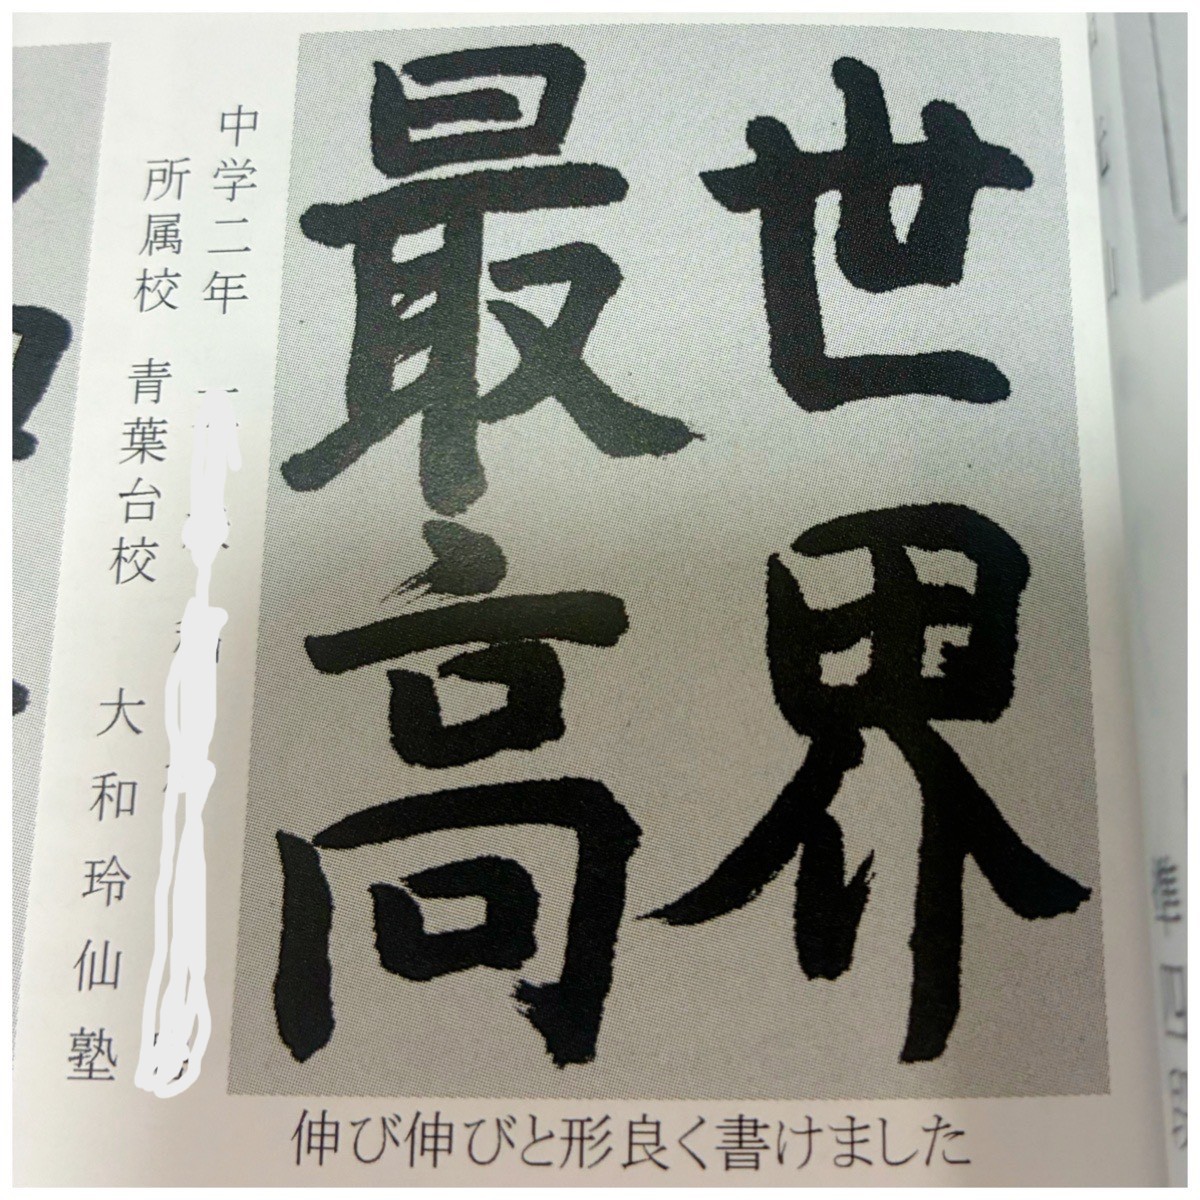 世界
最高
中学二年
所属校 青葉台校 大和玲仙塾
伸び伸びと形良く書けました